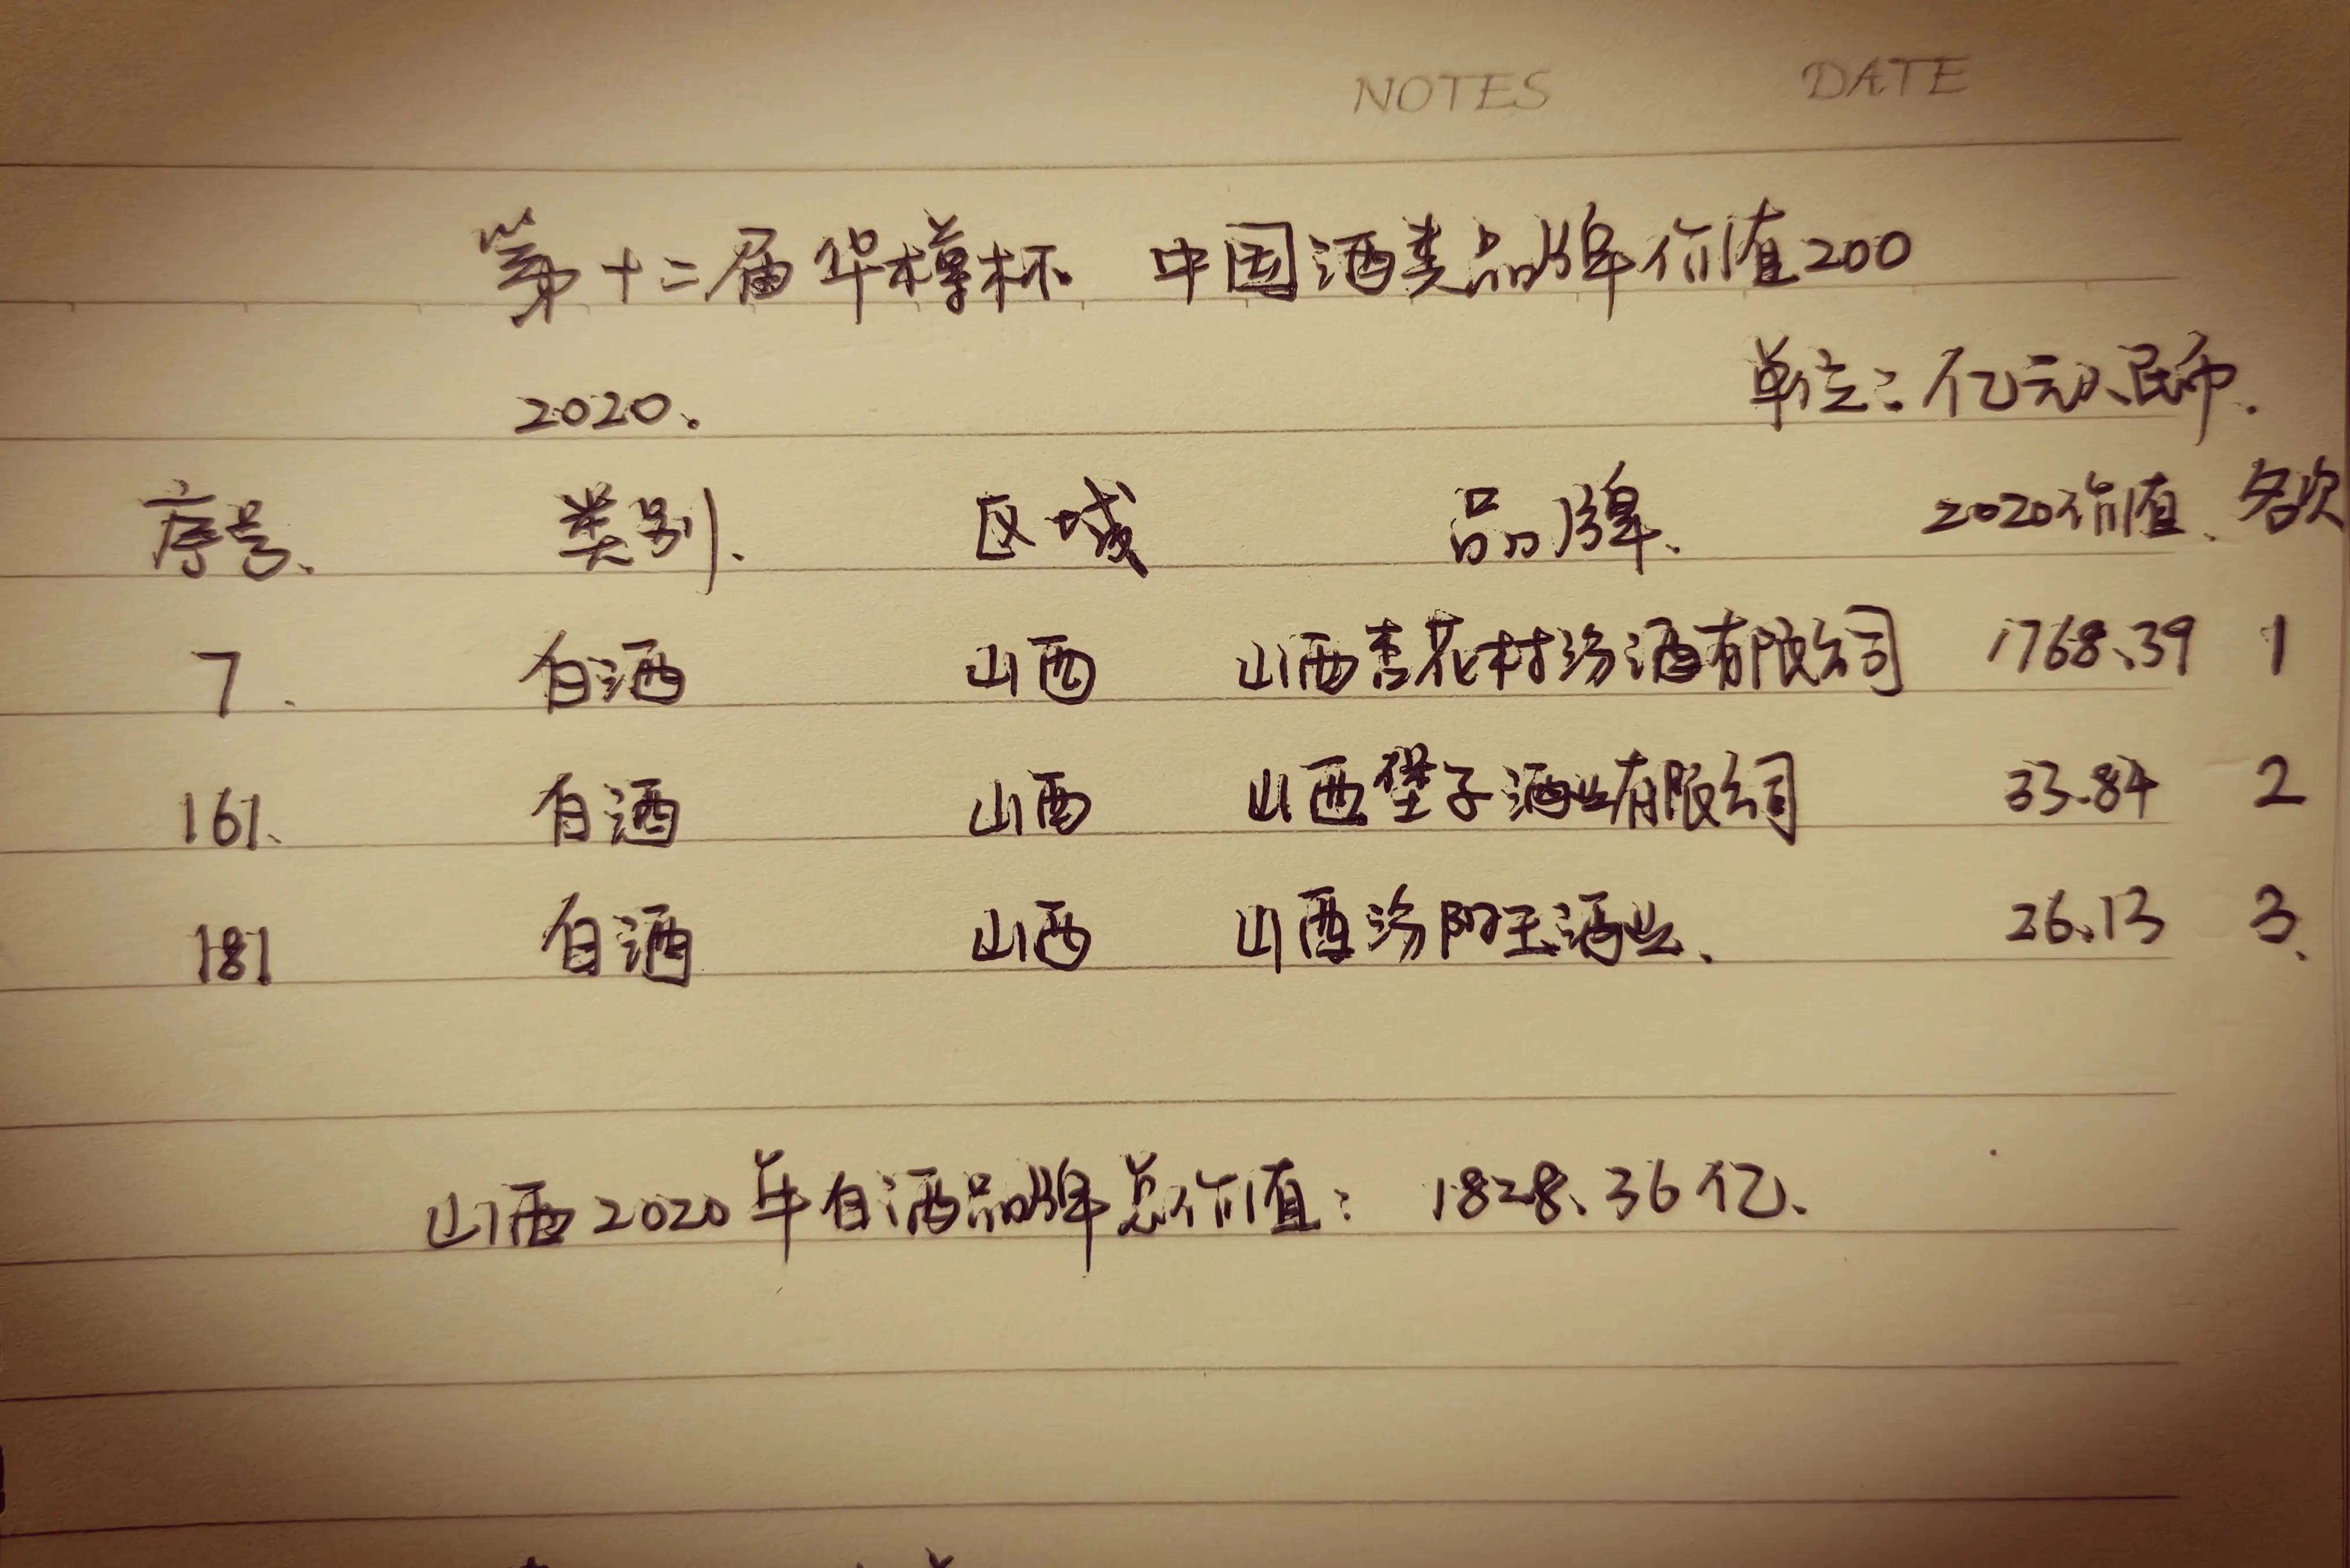 NOTES DATE
第十二届华樽杯 中国酒类品牌价值200
2020. 单位:亿元人民币.
序号、 类别、 区域 品牌、 2020价值、名次
7. 白酒 山西 山西杏花村汾酒有限公司 1768.39 1
161、 白酒 山西 山西堡子酒业有限公司 33.84 2
181 白酒 山西 山西汾阳王酒业、 26.13 3、
山西2020年白酒品牌总价值: 1828.36亿、